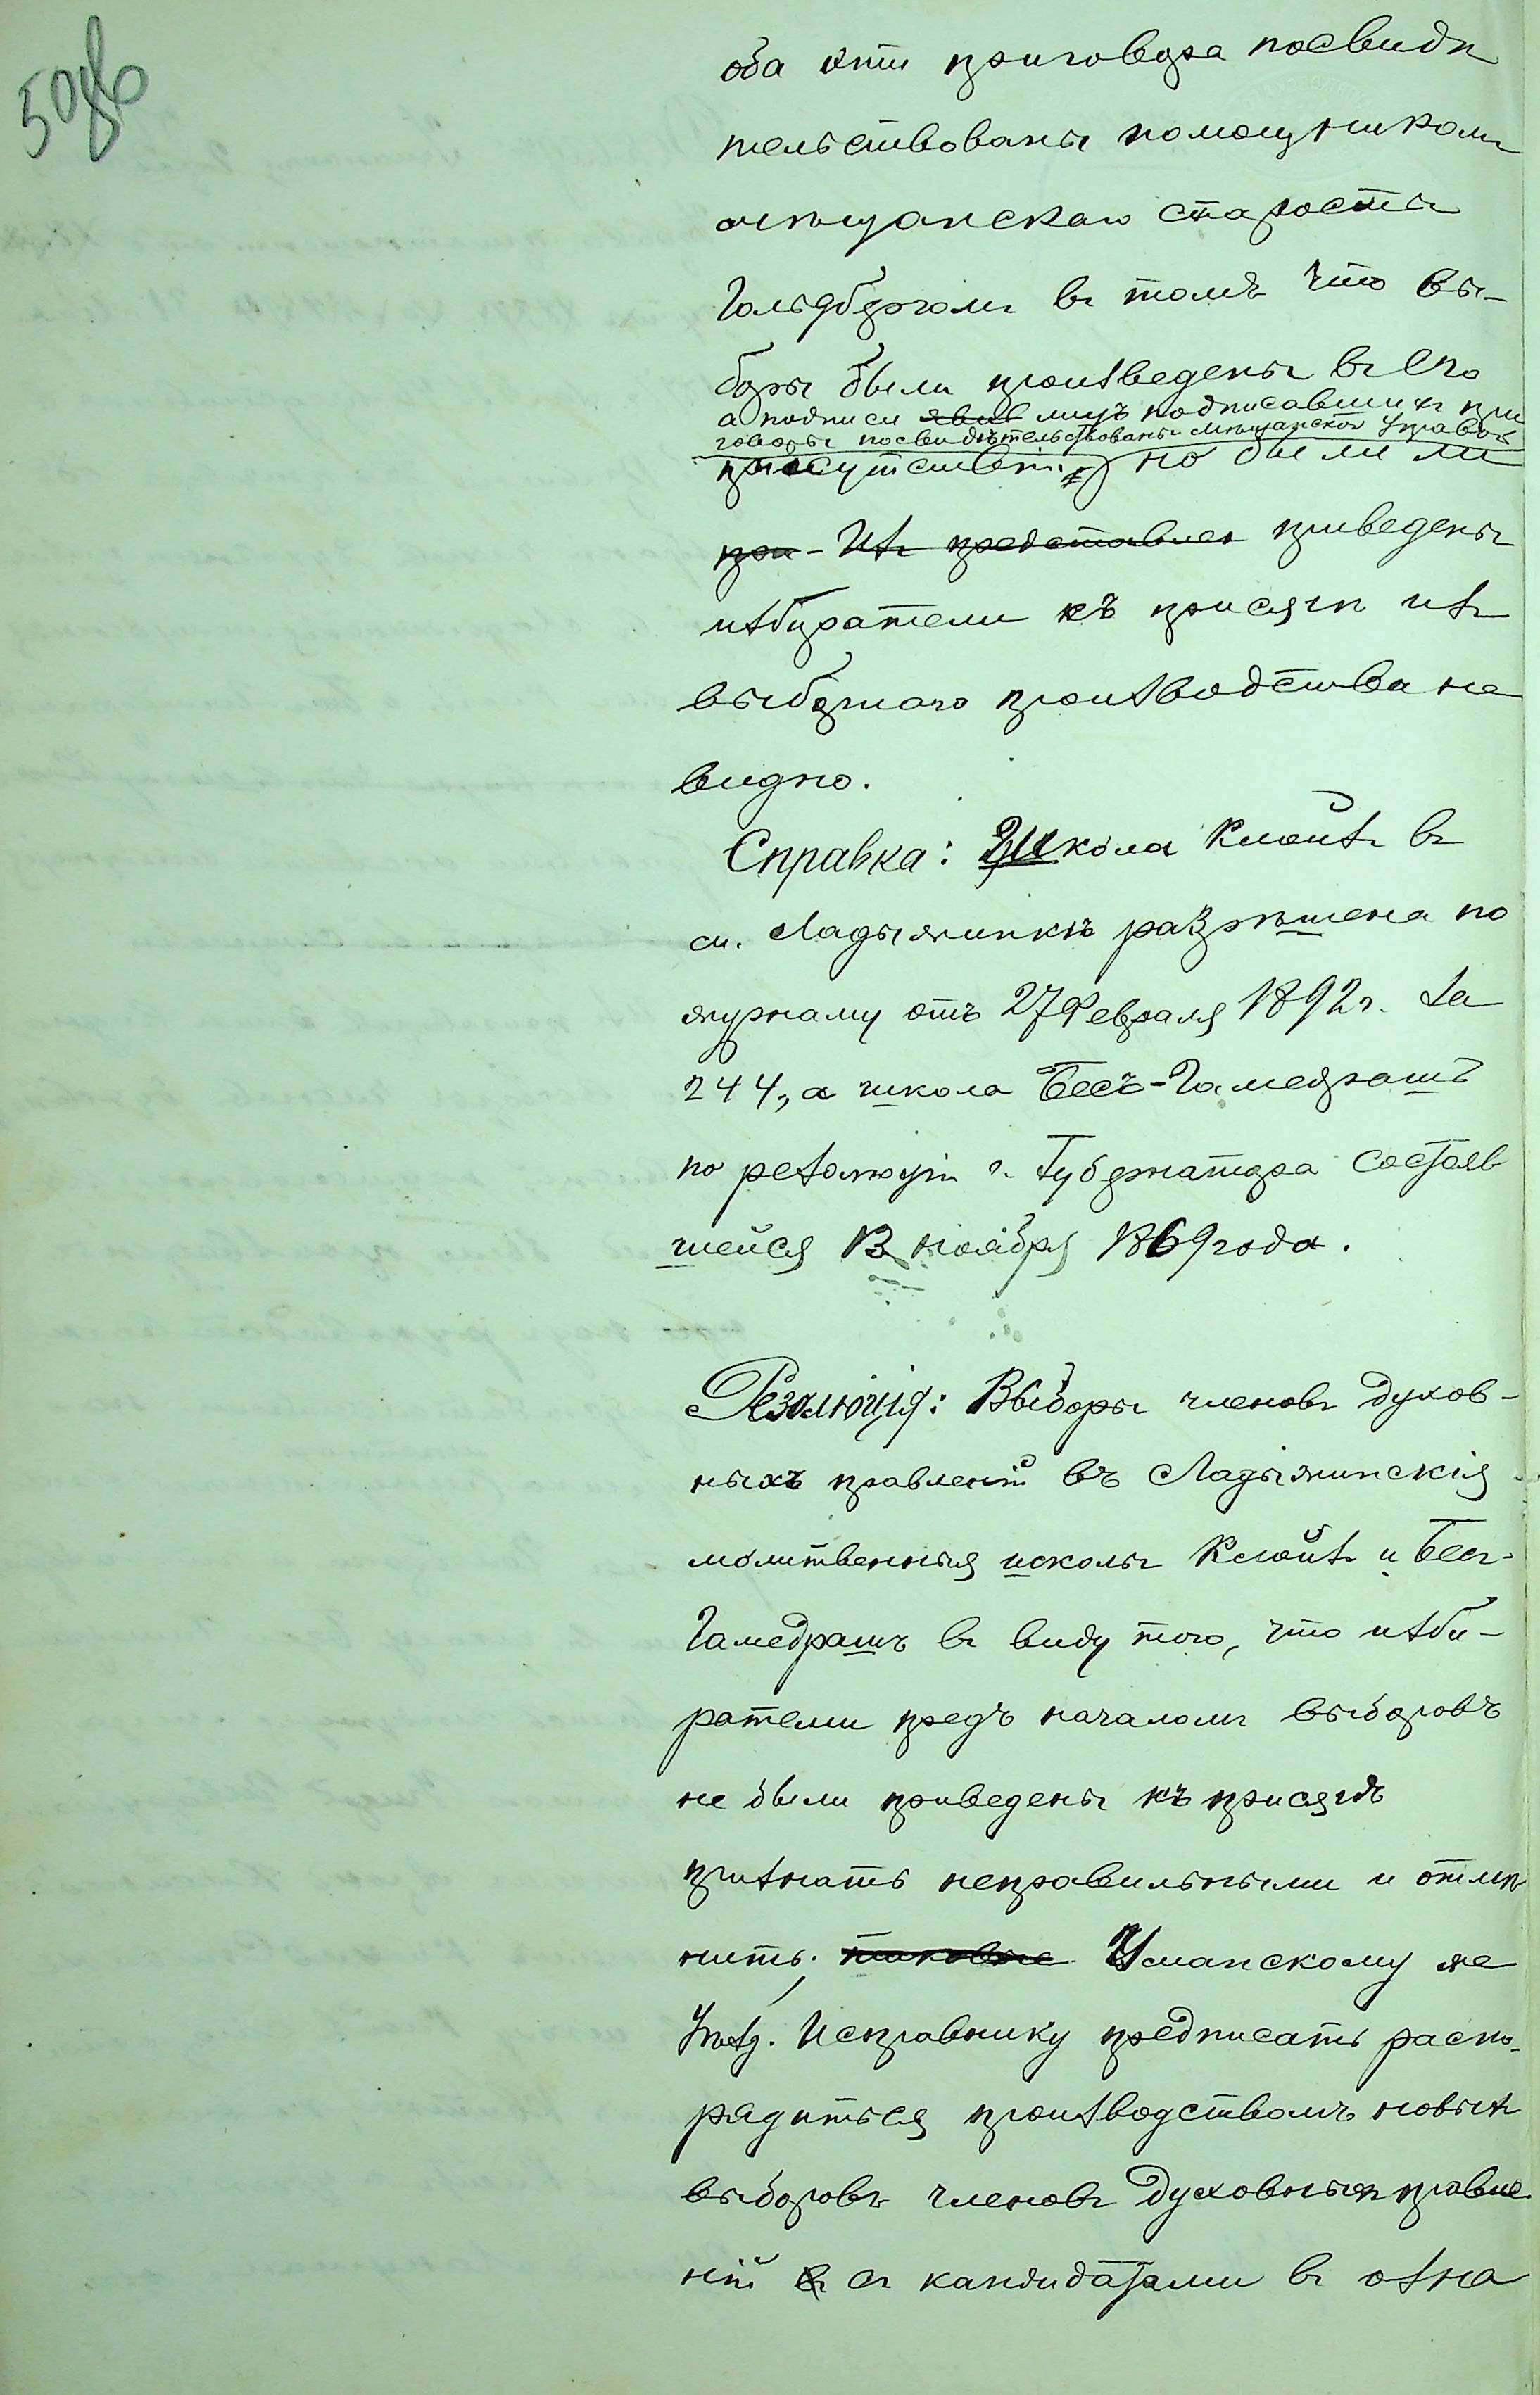 508б
оба эти приговора посвидѣ
тельствованы помощникомъ
мѣщанскаго старосты
Гольдбергомъ въ томъ что вы-
боры были произведены въ его
а подписи явив лицъ подписавшихъ при
говоры посвидѣтельствованы Мѣщанской Управой
присутствіи, но были ли
при - Изъ представлен приведены
избиратели къ присягѣ изъ
выборнаго производства не
видно.
Справка: Школа Клойзъ въ
м. Ладыжинкѣ разрѣшена по
журналу отъ 27 Февраля 1892 г. за
244, а школа Бесъ-Гамедрашъ
по резолюціи г. Губернатора состояв
шейся 13 ноября 1869 года.
Резолюція: Выборы членовъ духов-
ныхъ правленій въ Ладыжинскія
молитвенныя школы Клойзъ и Бесъ-
Гамедрашъ въ виду того, что изби-
ратели предъ началомъ выборовъ
не были приведены къ присягѣ
признать неправильными и отмѣ
нить; таковые Уманскому же
Уѣзд. Исправнику предписать распо-
рядиться производствомъ новыхъ
выборовъ членовъ духовныхъ правле
ній въ съ кандидатами въ озна